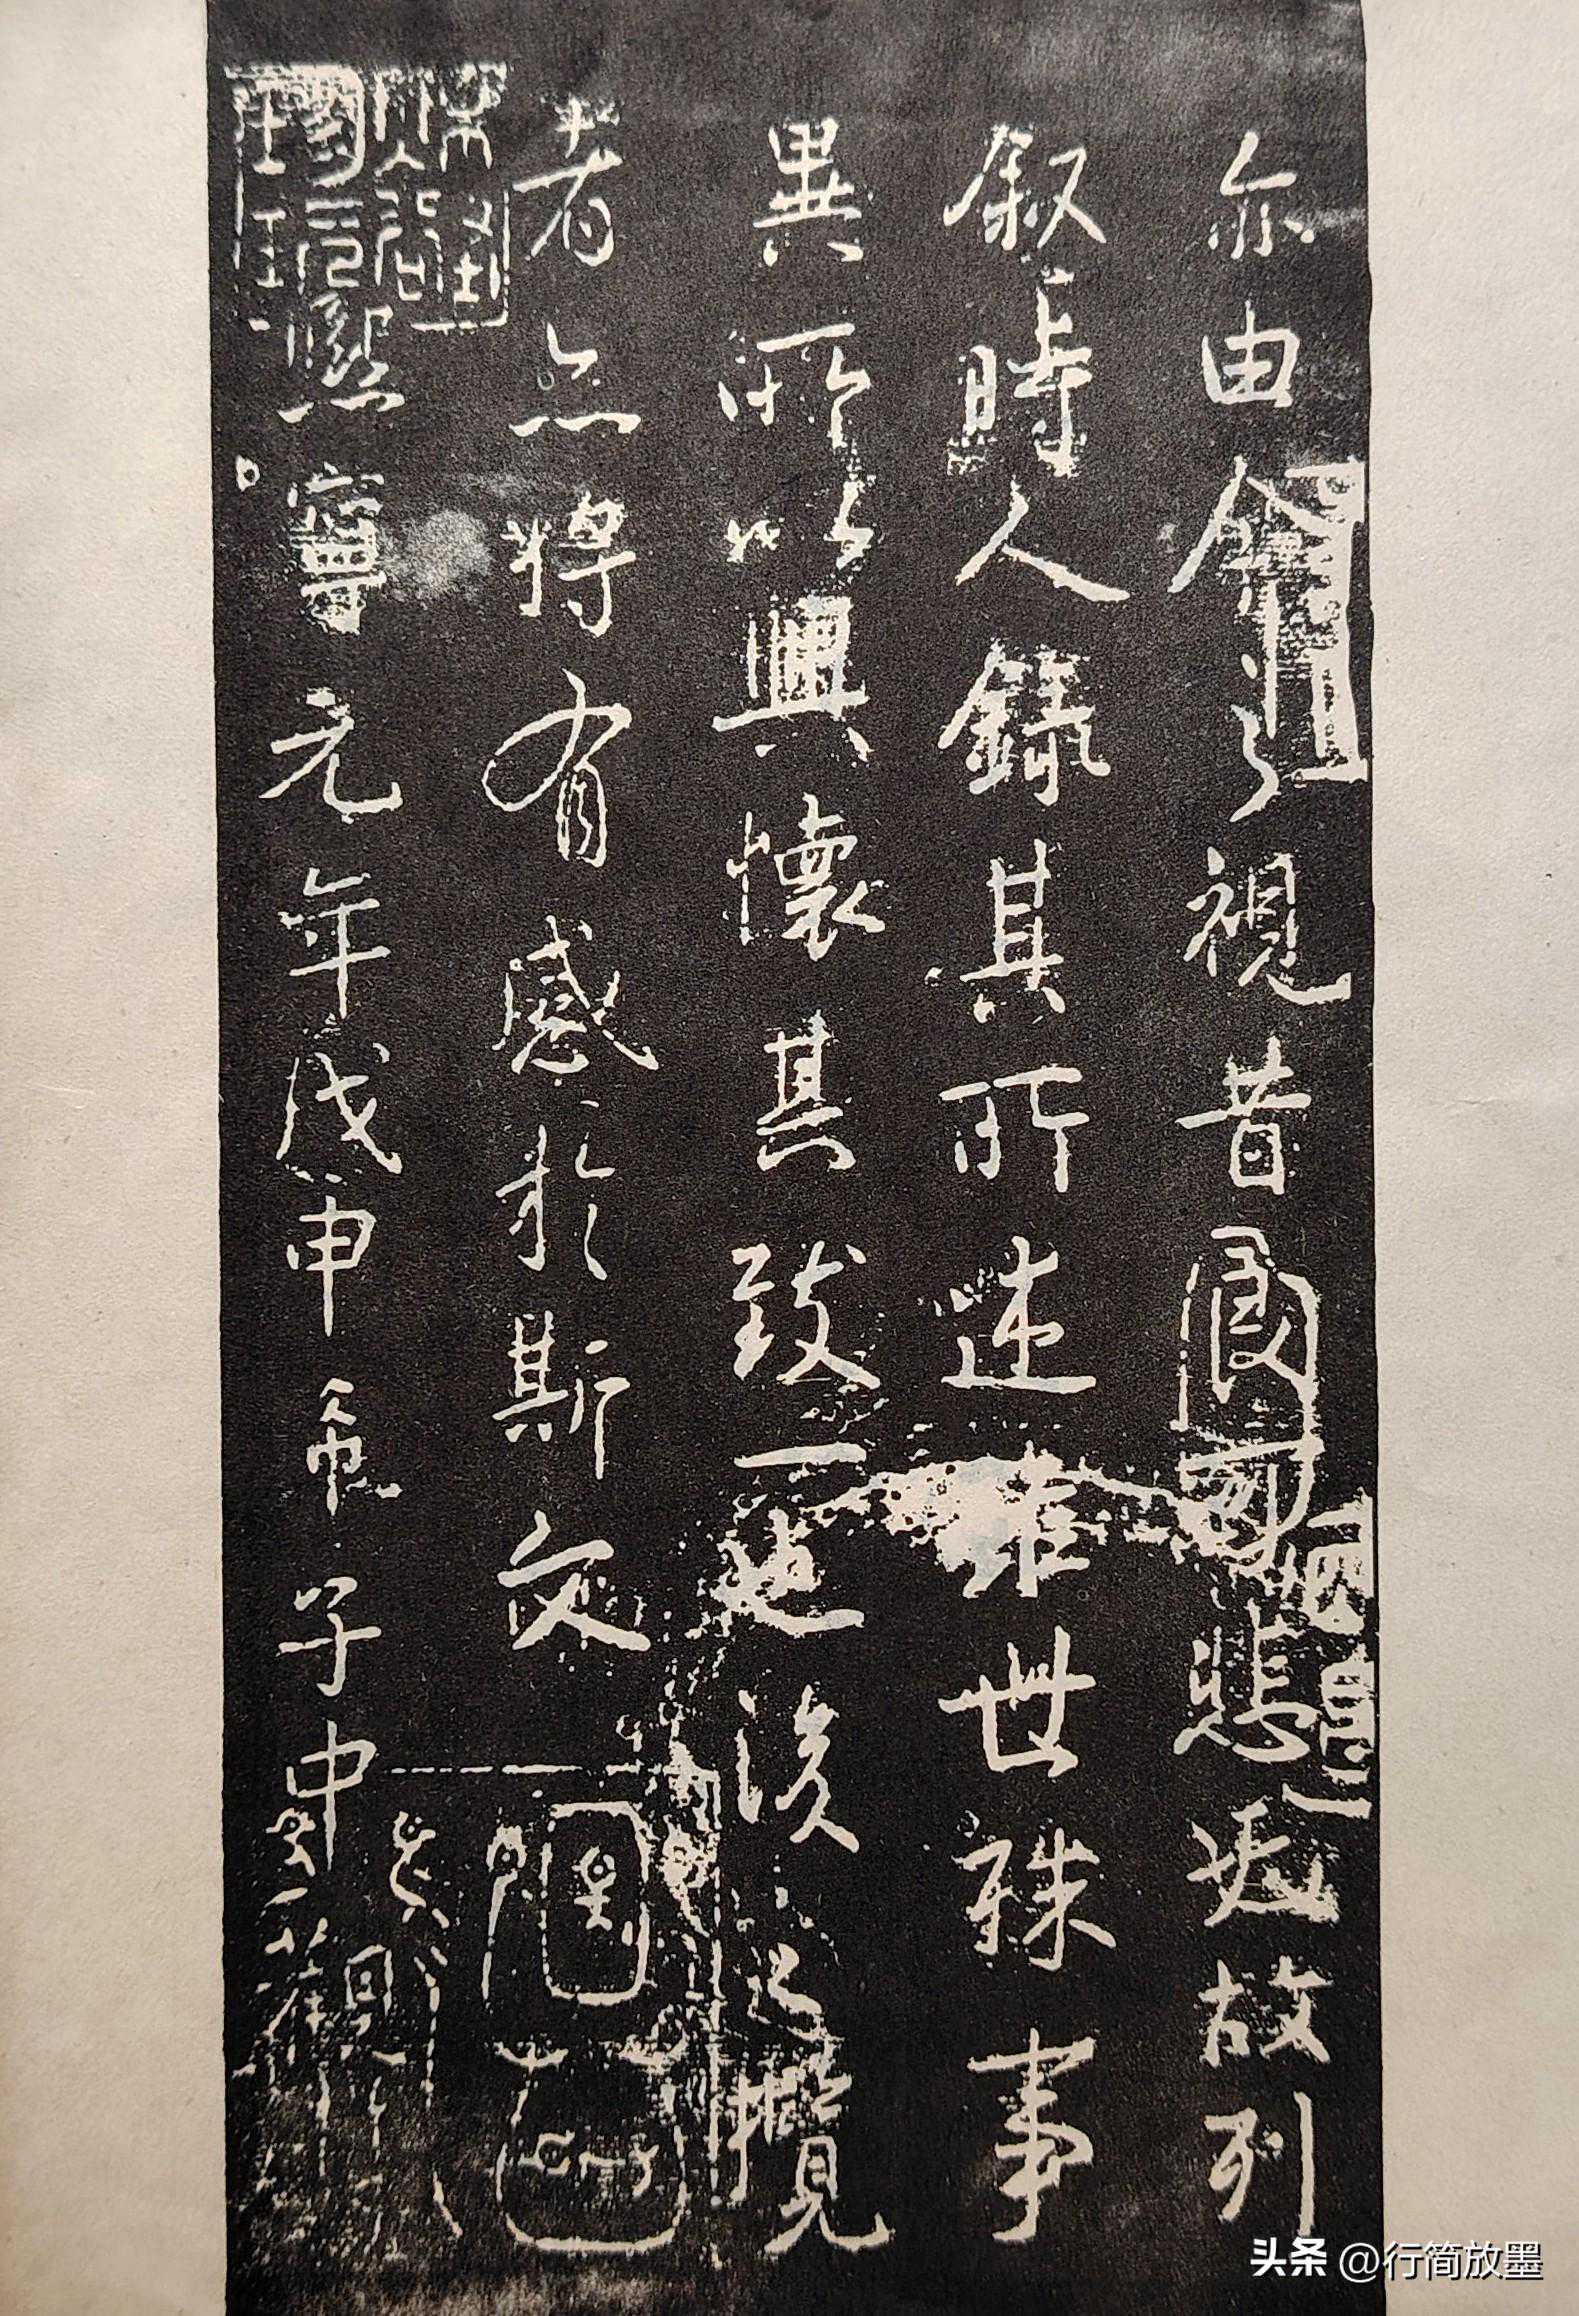 亦由今之視昔悲夫故列
叙時人錄其所述雖世殊事
異所以興懷其致一也後之攬
者亦將有感於斯文
熙寧元年戊申子中觀
头条 @行简放墨